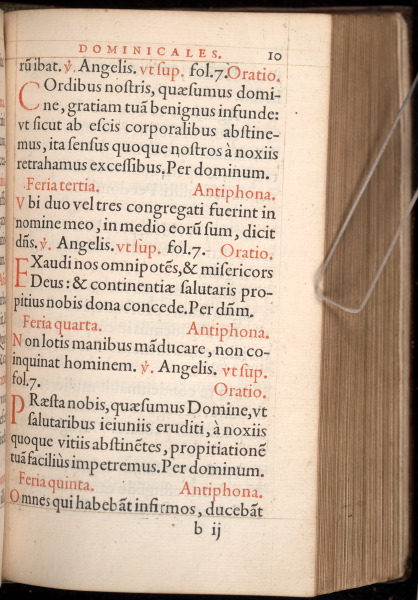 DOMINICALES. 10
rũ ibat. ℣. Angelis. vt sup. fol. 7. Oratio.
COrdibus nostris, quæsumus domi-
ne, gratiam tuã benignus infunde:
vt sicut ab escis corporalibus abstine-
mus, ita sensus quoque nostros à noxiis
retrahamus excessibus, Per dominum.
Feria tertia. Antiphona.
Vbi duo vel tres congregati fuerint in
nomine meo, in medio eorũ sum, dicit
dñs. ℣. Angelis. vt sup. fol. 7. Oratio.
EXaudi nos omnipotẽs, & misericors
Deus: & continentiæ salutaris pro-
pitius nobis dona concede. Per dñm.
Feria quarta. Antiphona.
Non lotis manibus mãducare, non co-
inquinat hominem. ℣. Angelis. vt sup.
fol. 7.
Oratio.
PRæsta nobis, quæsumus Domine, vt
salutaribus ieiuniis eruditi, à noxiis
quoque vitiis abstinẽtes, propitiationẽ
tuã faciliùs impetremus. Per dominum.
Feria quinta. Antiphona.
Omnes qui habebãt infirmos, ducebãt
b ij